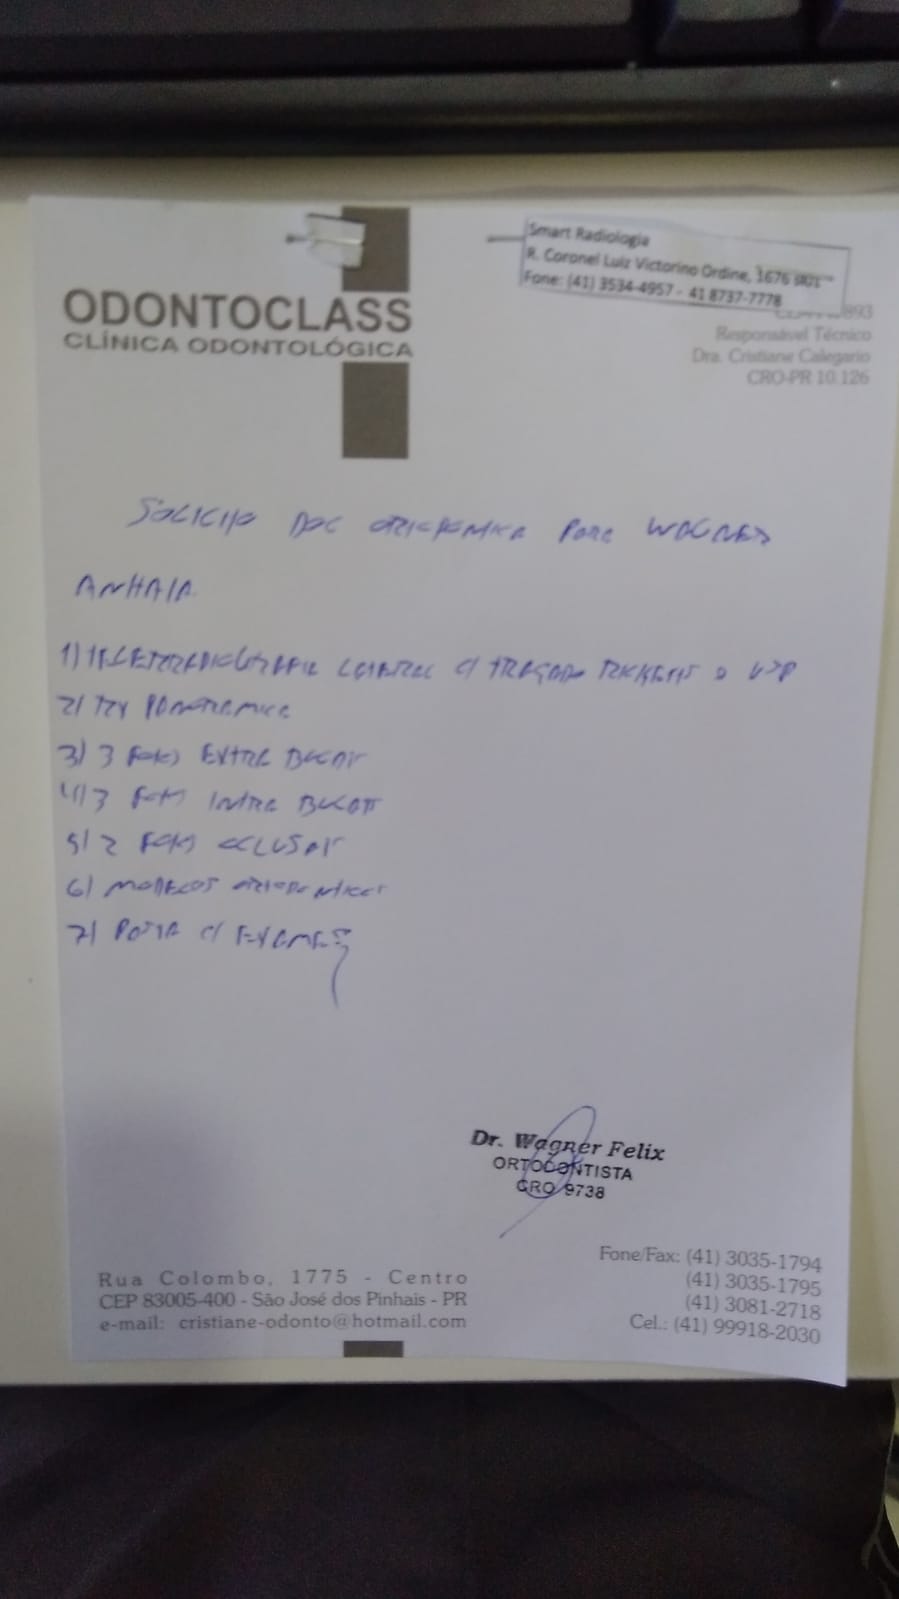 Smart Radiologia
R. Coronel Luiz Victorino Ordine, 1676
Fone: (41) 3534-4957 - 41 8737-7778
ODONTOCLASS
CLÍNICA ODONTOLÓGICA
893
Responsável Técnico
Dra. Cristiane Calegario
CRO-PR 10.126
SOLICITO DOC ORTODONTICA PARA WAGNER
ANHAIA
1) TELERRADIOGRAFIA LATERAL C/ TRAÇADO USP
2) RX PANORAMICA
3) 3 FOTOS EXTRA BUCAIS
4) 3 FOTOS INTRA BUCAIS
5) 2 FOTOS OCLUSAIS
6) MODELOS ORTODONTICOS
7) PASTA C/ EXAMES
Dr. Wagner Felix
ORTODONTISTA
CRO 9738
Rua Colombo, 1775 - Centro
CEP 83005-400 - São José dos Pinhais - PR
e-mail: cristiane-odonto@hotmail.com
Fone/Fax: (41) 3035-1794
(41) 3035-1795
(41) 3081-2718
Cel.: (41) 99918-2030